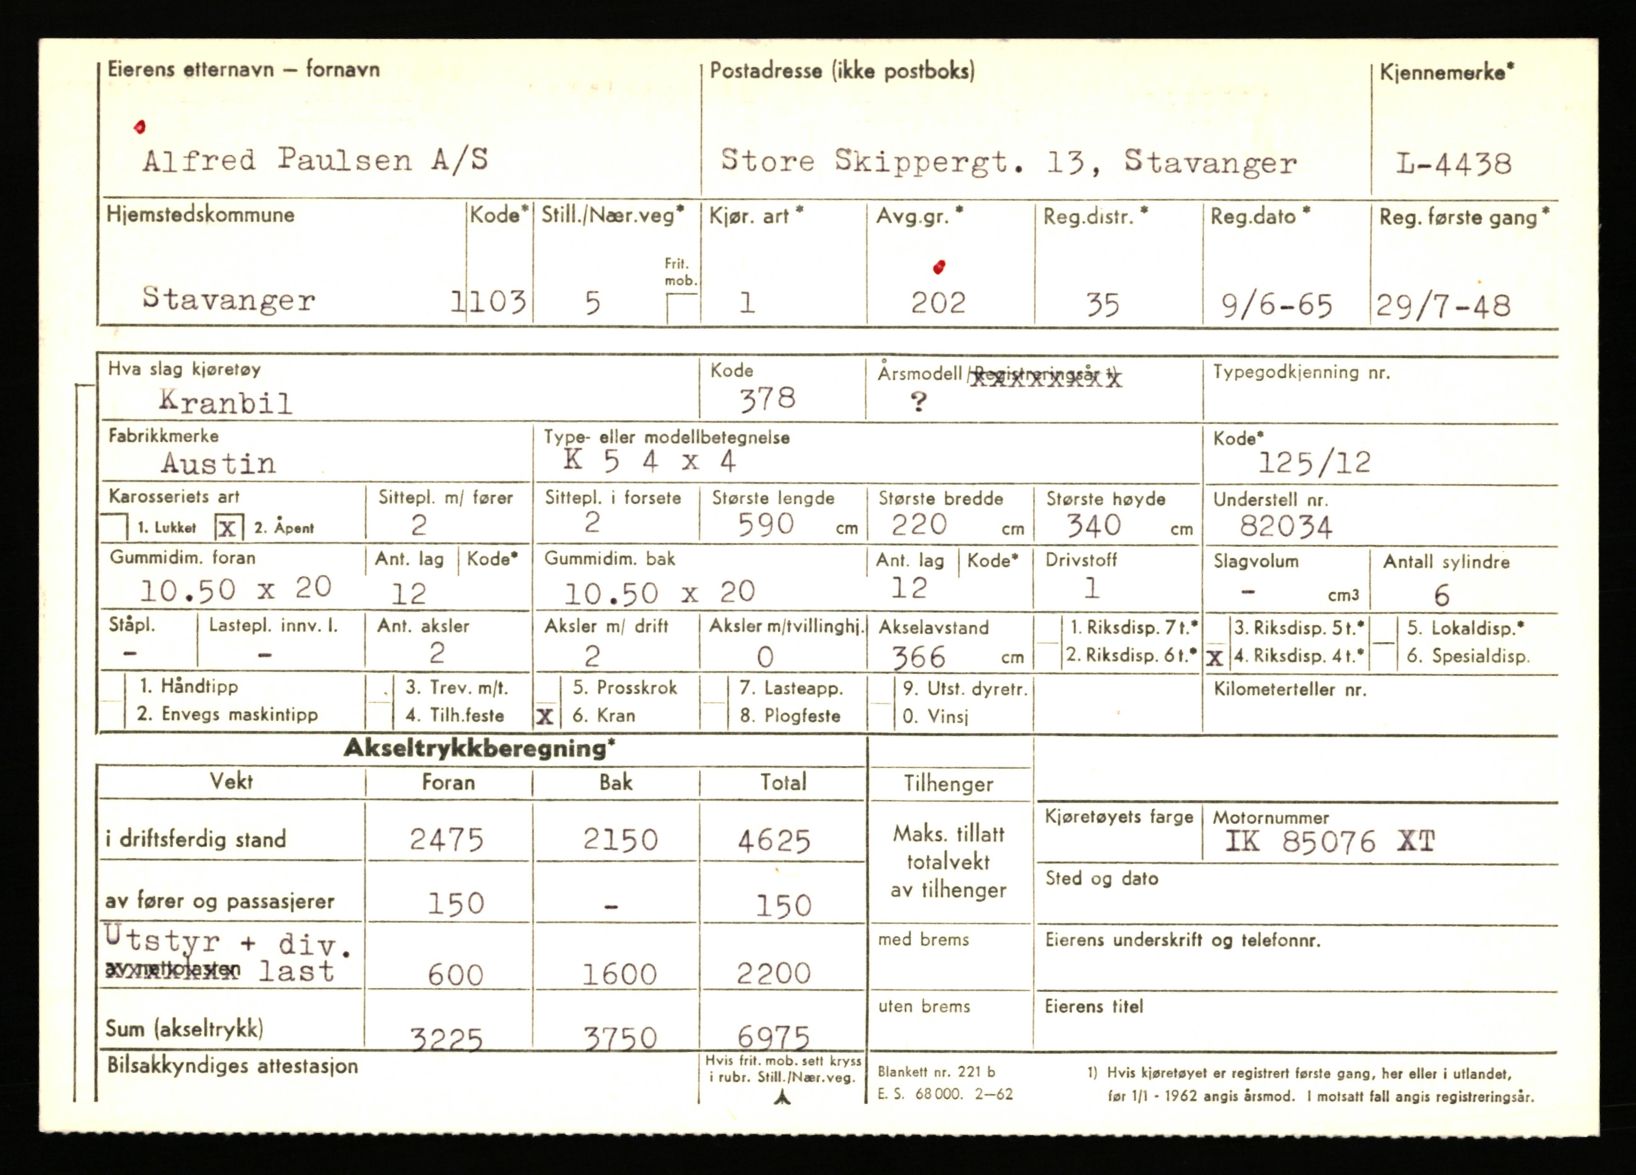 Eierens etternavn – fornavn Postadresse (ikke postboks) Kjennemerke*
Alfred Paulsen A/S Store Skippergt. 13, Stavanger L-4438
Hjemstedskommune Kode* Still./Nær.veg* Kjør. art* Avg.gr.* Reg.distr.* Reg.dato* Reg. første gang*
Frit.
mob.
Stavanger 1103 5 1 202 35 9/6-65 29/7-48
Hva slag kjøretøy Kode Årsmodell/Registreringsår 1) Typegodkjenning nr.
Kranbil 378 ?
Fabrikkmerke Type- eller modellbetegnelse Kode*
Austin K 5 4 x 4 125/12
Karosseriets art Sittepl. m/ fører Sittepl. i forsete Største lengde Største bredde Største høyde Understell nr.
1. Lukket X 2. Åpent 2 2 590 cm 220 cm 340 cm 82034
Gummidim. foran Ant. lag Kode* Gummidim. bak Ant. lag Kode* Drivstoff Slagvolum Antall sylindre
10.50 x 20 12 10.50 x 20 12 1 – cm3 6
Ståpl. Lastepl. innv. l. Ant. aksler Aksler m/ drift Aksler m/tvillinghj. Akselavstand 1. Riksdisp. 7 t.* 3. Riksdisp. 5 t.* 5. Lokaldisp.*
– – 2 2 0 366 cm 2. Riksdisp. 6 t.* X 4. Riksdisp. 4 t.* 6. Spesialdisp.
1. Håndtipp 3. Trev. m/t. 5. Prosskrok 7. Lasteapp. 9. Utst. dyretr. Kilometerteller nr.
2. Envegs maskintipp 4. Tilh.feste X 6. Kran 8. Plogfeste 0. Vinsj
Akseltrykkberegning*
Vekt Foran Bak Total Tilhenger
Kjøretøyets farge Motornummer
i driftsferdig stand 2475 2150 4625 Maks. tillatt IK 85076 XT
totalvekt
av tilhenger
Sted og dato
av fører og passasjerer 150 – 150
Utstyr + div. med brems Eierens underskrift og telefonnr.
av nettolasten last 600 1600 2200
uten brems Eierens titel
Sum (akseltrykk) 3225 3750 6975
Bilsakkyndiges attestasjon Hvis frit. mob. sett kryss
i rubr. Still./Nær.veg.
Blankett nr. 221 b
E. S. 68 000. 2–62
1) Hvis kjøretøyet er registrert første gang, her eller i utlandet,
før 1/1 - 1962 angis årsmod. I motsatt fall angis registreringsår.